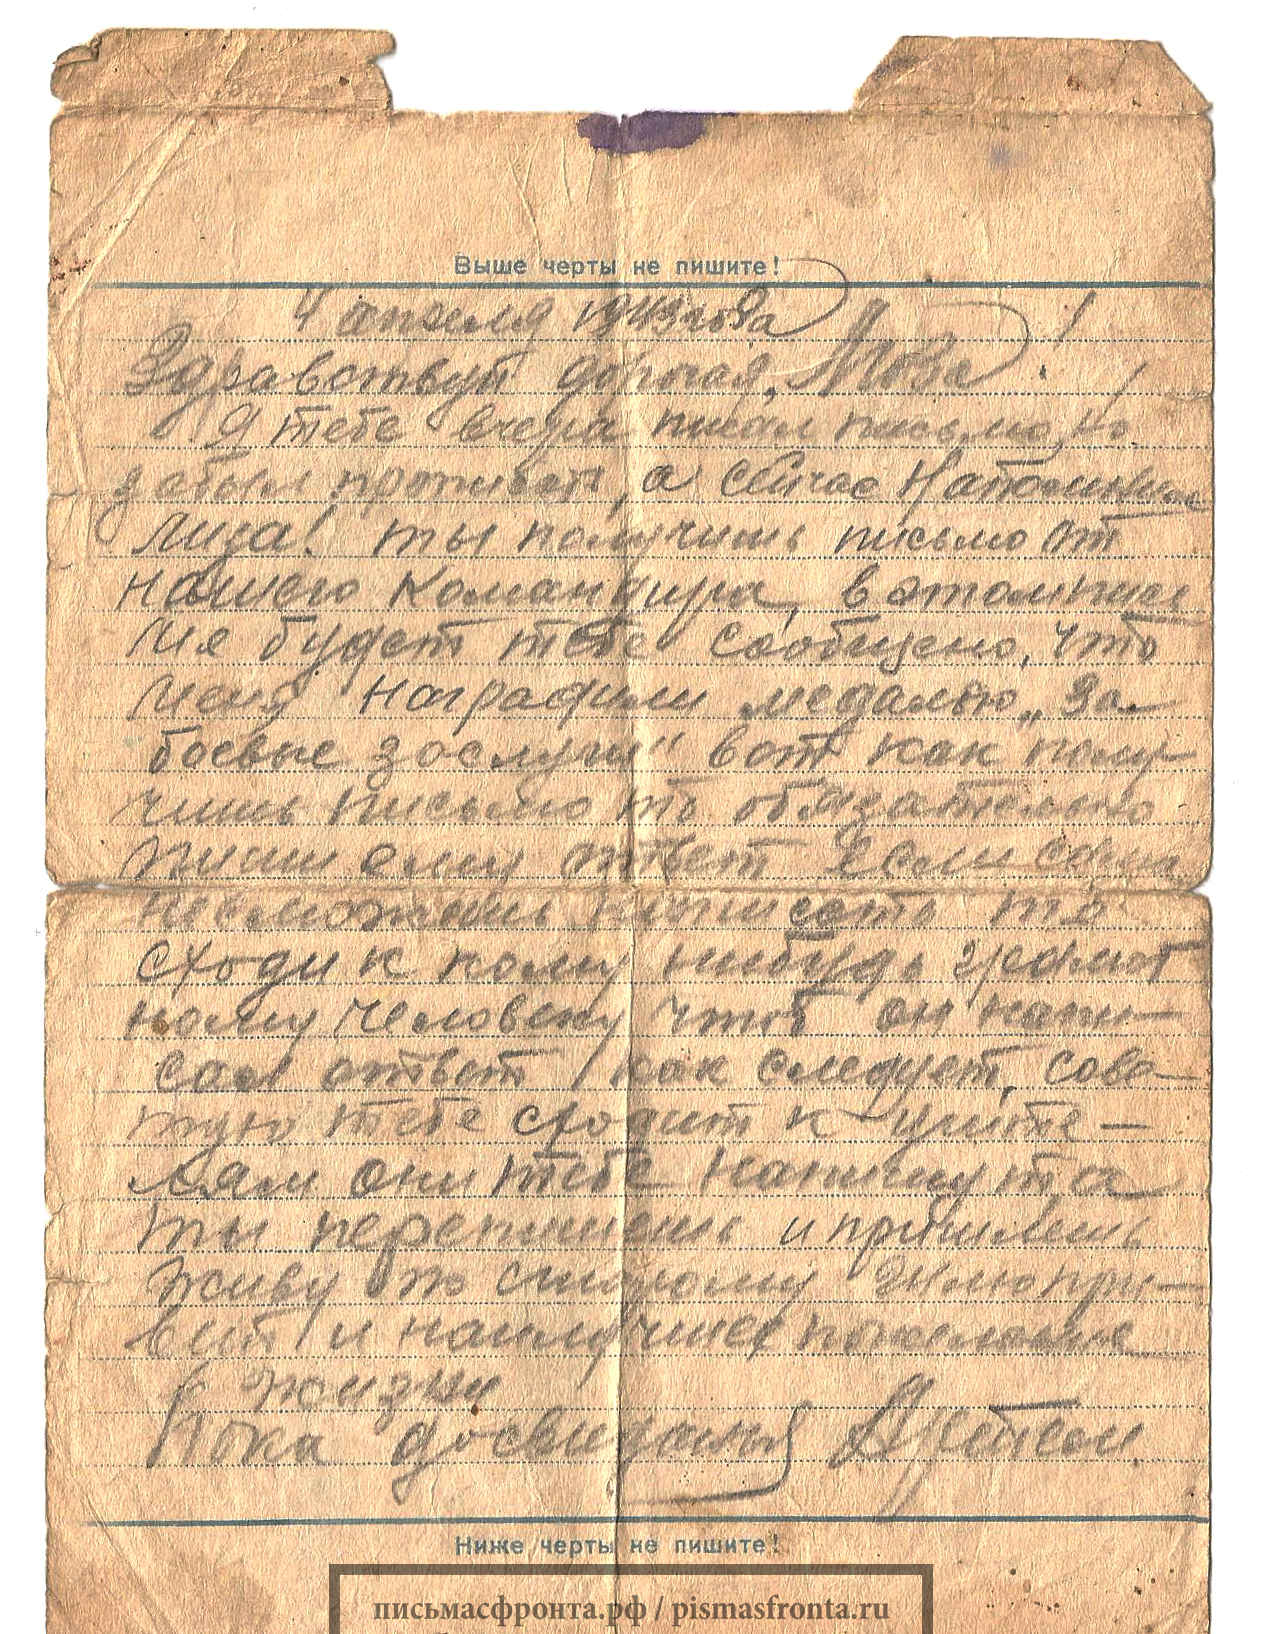 Выше черты не пишите!
4 апреля 1943 года
Здравствуй дорогая, !
Я тебе вчера писал письмо, но
забыл прописать, а сейчас напоминаю
Лиза! ты получишь письмо от
нашего командира, в этом пись
мя будет тебе сообщено, что
меня наградили медалью „За
боевые заслуги" вот как полу-
чишь письмо то обязательно
пиши ему ответ Если сама
несможешь написать то
сходи к кому нибудь грамот
ному человеку чтоб он напи-
сал ответ как следует, сове-
тую тебе сходит к учите-
лям они тебе напишут а
ты перепишешь и пришлешь
живу по старому шлю при-
вет и наилучшех пожелания
в жизни
Пока досвидания
Ниже черты не пишите!
письмасфронта.рф / pismasfronta.ru